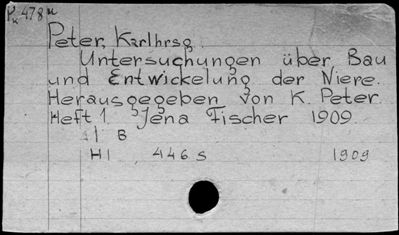 Pu 478 u
Peter, Karlhrsg.
Untersuchungen über Bau
und Entwickelung der Niere.
Herausgegeben von K. Peter.
Heft 1 Jena Fischer 1909.
1 B
H1 446 S 1909